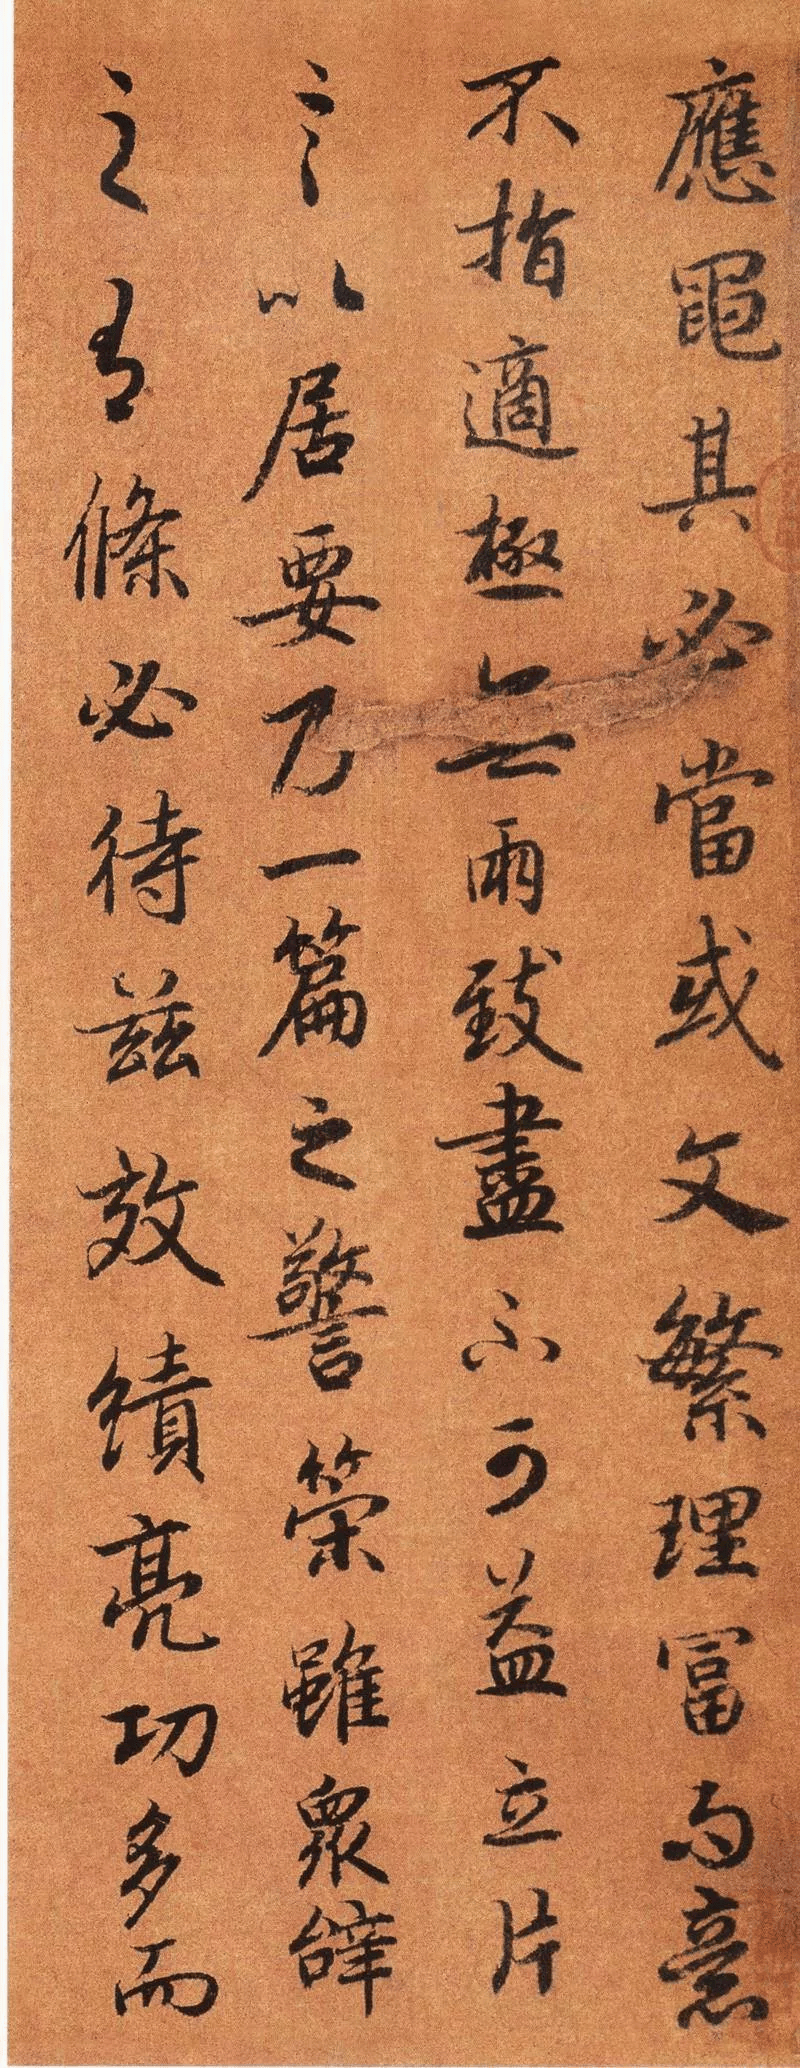 應黽其必當或文繁理富而意
不指適極無兩致盡不可益立片
言以居要乃一篇之警策雖眾辞
之有條必待茲效績亮功多而